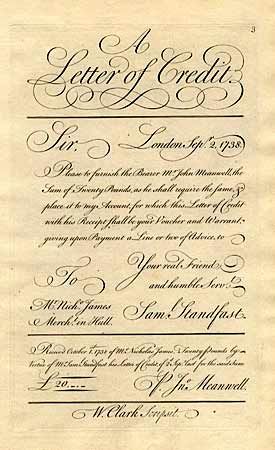 3
A
Letter of Credit.
Sir, London Sepr. 2, 1738.
Please to furnish the Bearer Mr. John Meanwell, the
Sum of Twenty Pounds, as he shall require the same, &
place it to my Account, for which this Letter of Credit
with his Receipt shall be your Voucher and Warrant;
giving upon Payment a Line or two of Advice, to
Your real Friend
To and humble Servt.
Mr. Nichs. James
Mercht. in Hull. Sam. Standfast.
Receiv'd October 1, 1738 of Mr. Nicholas James Twenty Pounds by
Vertue of Mr. Sam. Standfast his Letter of Credit of 2 Sepr. last for the said sum
£ 20.--.-- P Jno. Meanwell.
W. Clark Scripsit.